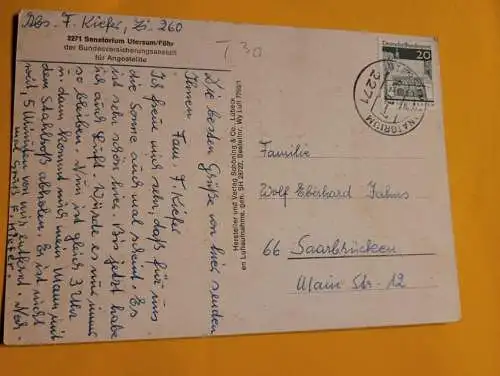 Abs. F. Kiefer, Zi. 260
2271 Sanatorium Utersum/Föhr
der Bundesversicherungsanstalt
für Angestellte
T 30
Deutsche Bundespost
20
2271
SANATORIUM
Die besten Grüße von hier senden
Ihnen Fam. F. Kiefer
Ich freue mich sehr, daß für uns
die Sonne auch mal scheint. Es
ist sehr schön hier. Bis jetzt habe
ich auch Luft. Würde es nur immer
so bleiben. Nun ist gleich 3 Uhr
u. dann kommt mich mein Mann mit
dem Stahlroß abholen. Er ist nicht
weit, 5 Minuten von mir entfernt. Noch-
mal Gruß F. Kiefer.
Hersteller und Verlag Schöning & Co., Lübeck
en Luftaufnahme, geh. SH 28722, Bestellnr. Wy Luft 7090/1
Familie
Wolf Eberhard Jahns
66 Saarbrücken
Main Str. 12